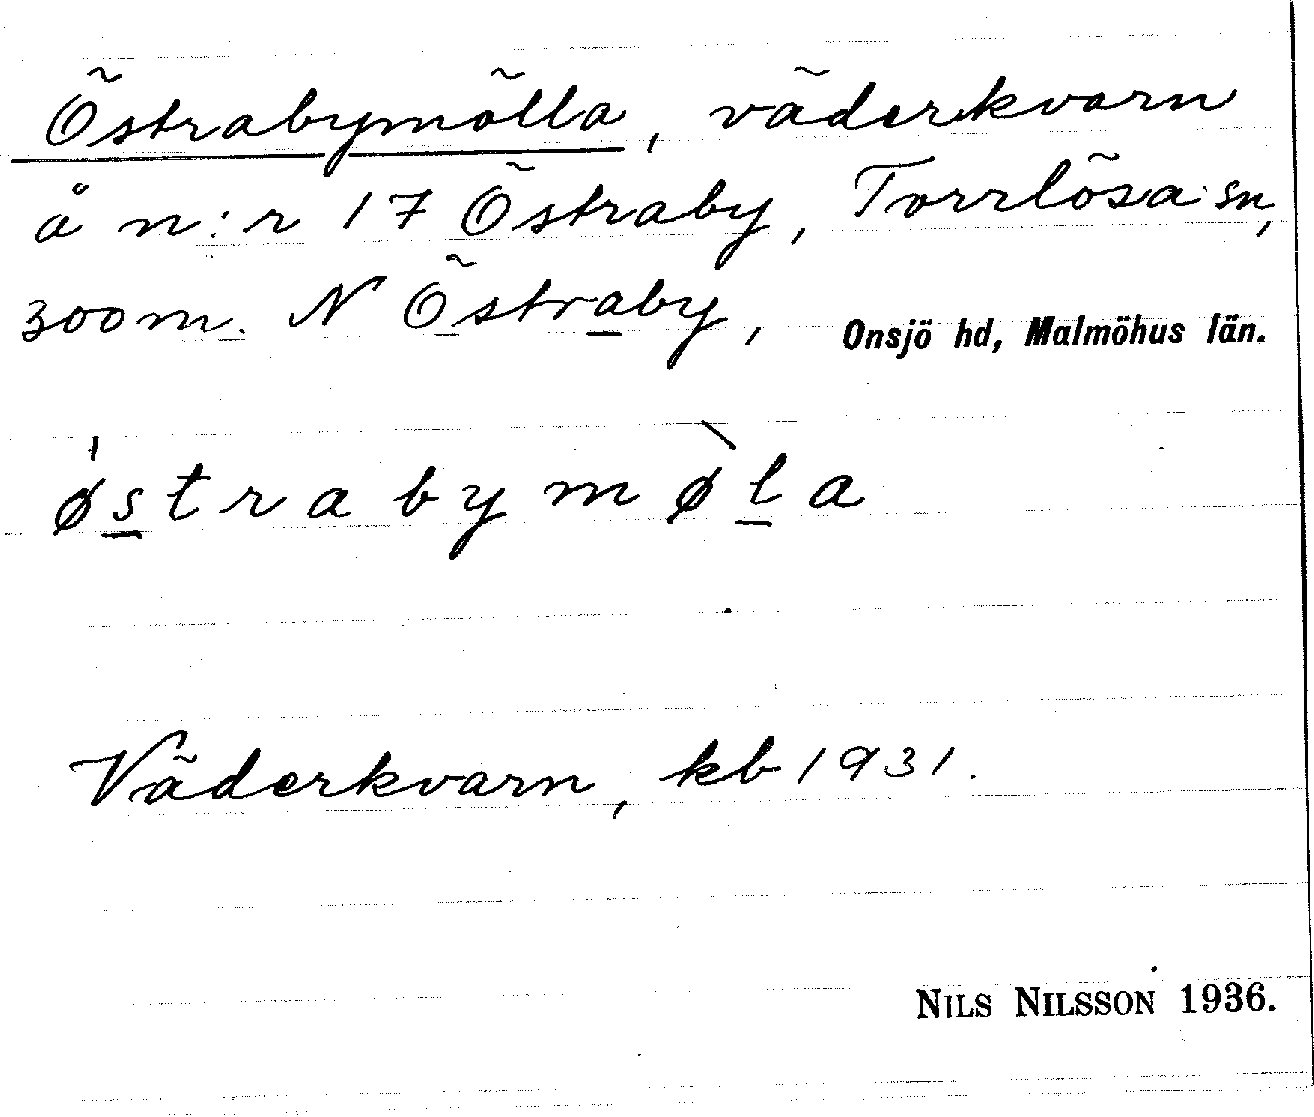 Östrabymölla, väderkvarn
å n:r 17 Östraby, Torrlösa sn,
300 m. N Östraby, Onsjö hd, Malmöhus län.
østrabymøla
Väderkvarn, kb 1931.
NILS NILSSON 1936.